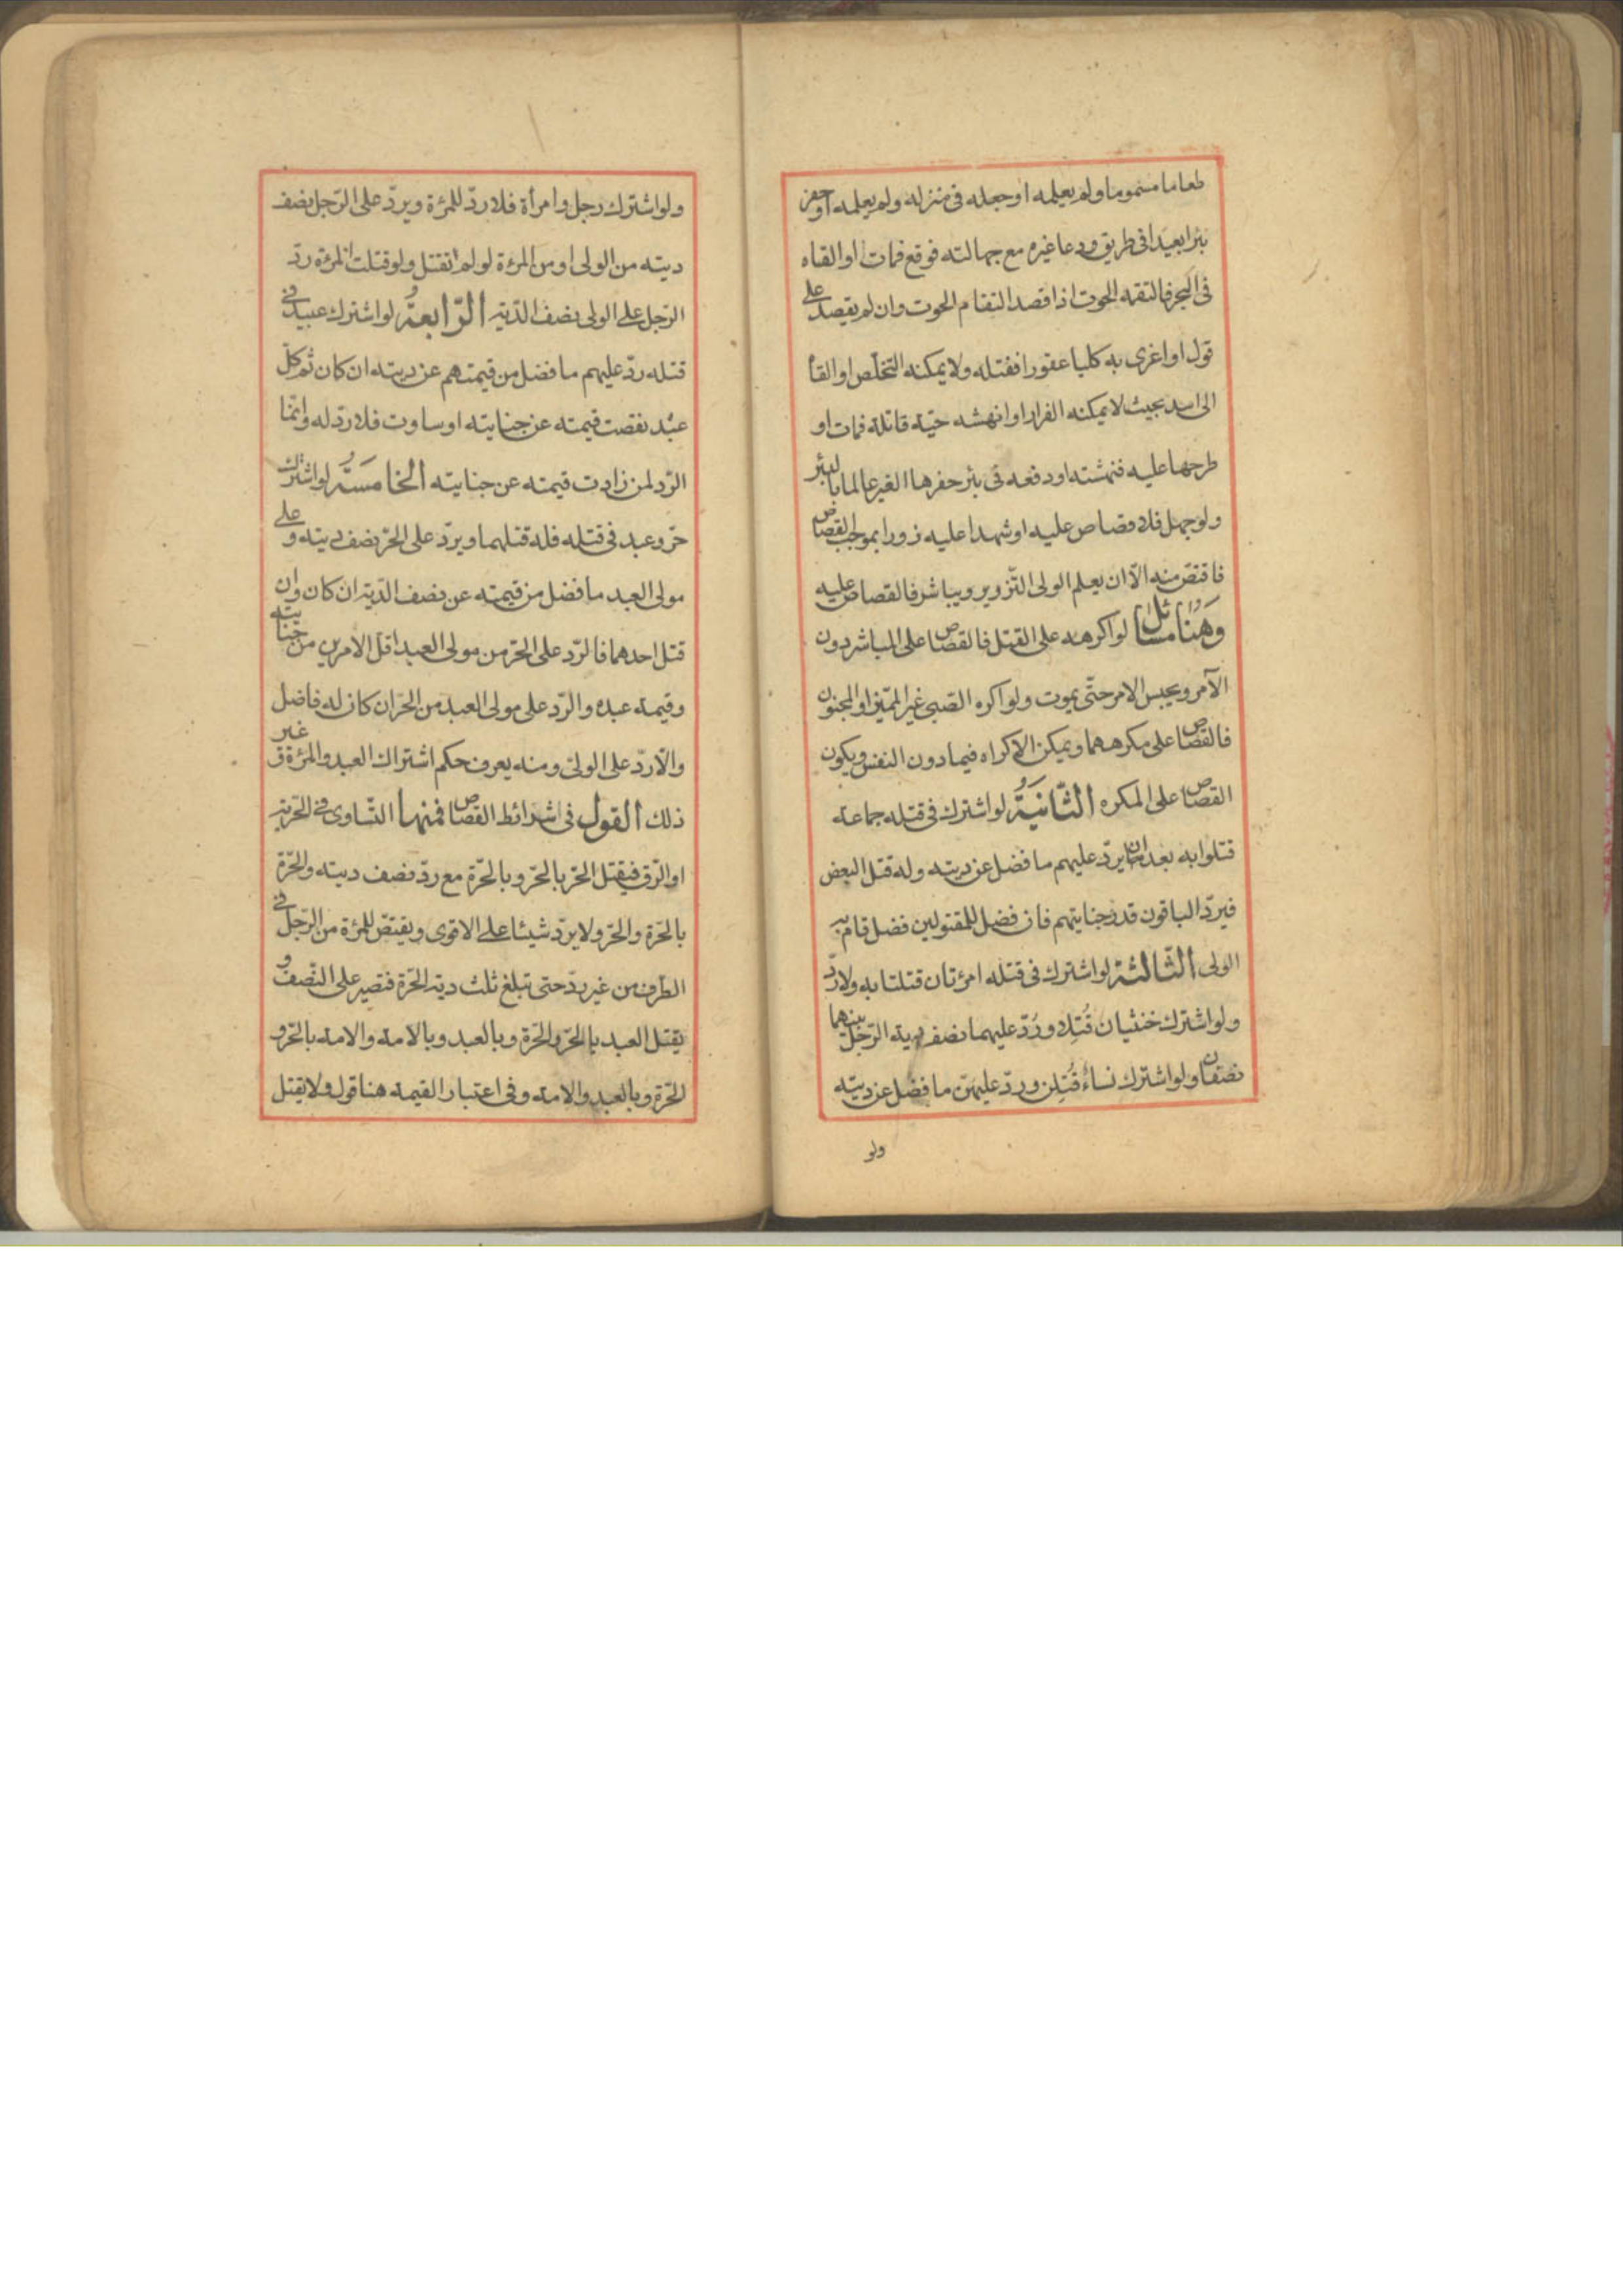 طعاما مسموما ولم يعلمه او جعله فى منزله ولم يعلمه او حفر
بئرا بعيدا فى طريق ودعا غيره مع جهالته فوقع فمات او القاه
فى البحر فالتقمه الحوت اذا قصد التقام الحوت وان لم يقصد على
قول او اغرى به كلبا عقورا فقتله ولا يمكنه التخلّص او القاه
الى اسد بحيث لا يمكنه الفرار او انهشه حيّة قاتلة فمات او
طرحها عليه فنهشته او دفعه فى بئر حفرها الغير عالما بالبئر
ولو جهل فلا قصاص عليه او شهدا عليه زورا بموجب القصاص
فاقتصّ منه الّا ان يعلم الولى التّزوير ويباشر فالقصاص عليه
وَهُنا مسائل لو اكرهه على القتل فالقصاص على المباشر دون
الآمر ويحبس الامر حتّى يموت ولو اكره الصّبى غير المميّز او المجنون
فالقصاص على مكرههما ويمكن الاكراه فيما دون النفس ويكون
القصاص على المكره الثّانيَةُ لو اشترك فى قتله جماعة
قتلوا به بعد ان يردّ عليهم ما فضل عن ديته وله قتل البعض
فيردّ الباقون قدر جنايتهم فان فضل للمقتولين فضل قام به
الولى الثّالثة لو اشترك فى قتله امرئتان قتلتا به ولا ردّ
ولو اشترك خنثيان قُتِلا ورُدّ عليهما نصف دية الرّجل بينهما
نصفان ولو اشترك نساءُ قُتِلن وردّ عليهنّ ما فضل عن ديته
ولو
ولو اشترك رجل وامرأة فلا ردّ للمرئة ويردّ على الرّجل نصف
ديته من الولى او من المرئة لو لم تقتل ولو قتلت المرئة ردّ
الرّجل على الولى نصف الدّية الرّابعةُ لو اشترك عبيد فى
قتله ردّ عليهم ما فضل من قيمتهم عن ديته ان كان ثم كلّ
عبد نقصت قيمته عن جنايته او ساوت فلا ردّ له وانّما
الرّد لمن زادت قيمته عن جنايته الخامسَةُ لو اشترك
حرّ وعبد فى قتله فله قتلهما ويردّ على الحرّ نصف ديته وعلى
مولى العبد ما فضل من قيمته عن نصف الدّية ان كان وان
قتل احدهما فالرّد على الحرّ من مولى العبد اقل الامرين من جنايته
وقيمة عبده والرّد على مولى العبد من الحرّ ان كان له فاضل
والّا ردّ على الولىّ ومنه يعرف حكم اشتراك العبد والمرئة و غير
ذلك القول فى شرائط القصاص فمنها التّساوى فى الحرّية
او الرّق فيقتل الحرّ بالحرّ وبالحرّة مع ردّ نصف ديته والحرّة
بالحرّة والحرّ ولا يردّ شيئا على الاقوى ويقتصّ للمرئة من الرّجل فى
الطرف من غير ردّ حتى تبلغ ثلث دية الحرّة فتصير على النّصف و
يقتل العبد بالحرّ والحرّة وبالعبد وبالامة والامة بالحرّ و
الحرّة وبالعبد والامة وفى اعتبار القيمة هنا قول ولا يقتل